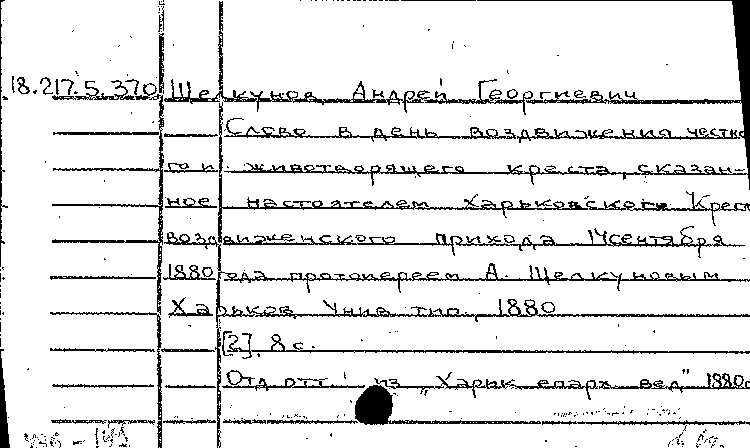 18.217.5.370 Щелкунов, Андрей Георгиевич
Слово в день воздвижения честно
го и животворящего креста, сказан-
ное настоятелем Харьковского Крест
воздвиженского прихода 14 сентября
1880 года протоиереем А. Щелкуновым
Харьков Унив тип, 1880
[2], 8 с.
Отд отт. из „Харьк епарх вед" 1880г